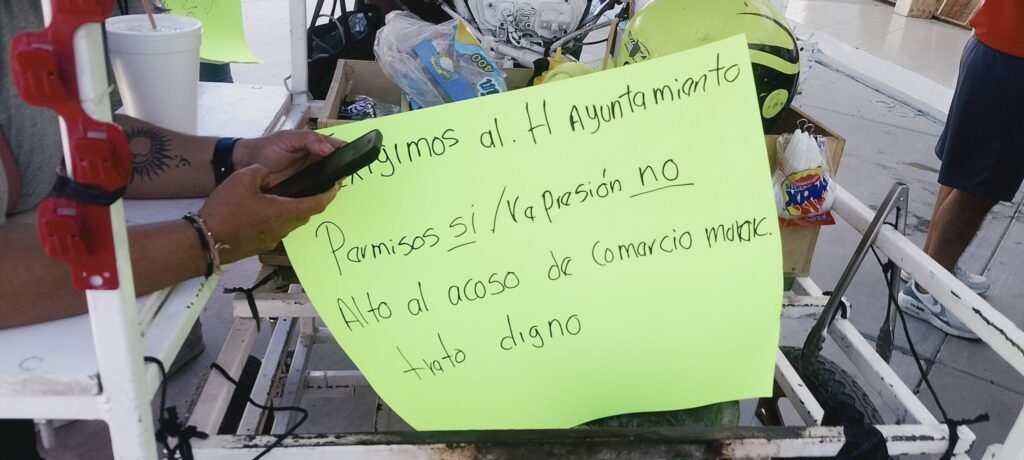 Exigimos al. H Ayuntamiento
Permisos si / represión no
Alto al acoso de comercio
trato digno